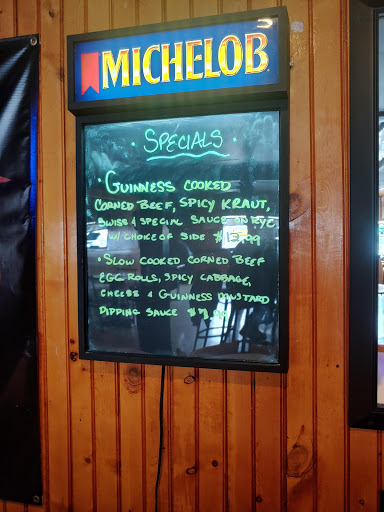 MICHELOB
• SPECIALS •
• GUINNESS COOKED
CORNED BEEF, SPICY KRAUT,
SWISS & SPECIAL SAUCE ON RYE
W/ CHOICE OF SIDE $13.99
• SLOW COOKED CORNED BEEF
EGG ROLLS, SPICY CABBAGE,
CHEESE & GUINNESS MUSTARD
DIPPING SAUCE